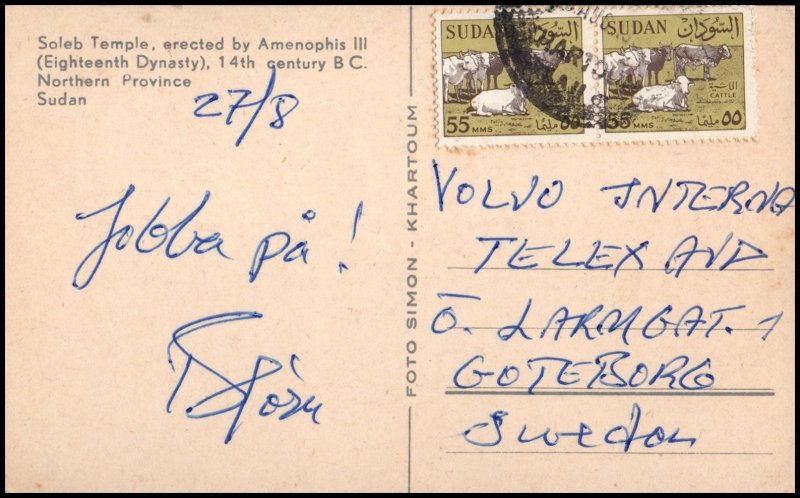 Soleb Temple, erected by Amenophis III
(Eighteenth Dynasty), 14th century B C.
Northern Province
Sudan
27/8
Jobba på!
Björn
FOTO SIMON - KHARTOUM
SUDAN السودان
الماشية
CATTLE
55 MMS ٥٥ مليما
SUDAN السودان
الماشية
CATTLE
55 MMS ٥٥ مليما
KHARTOUM
VOLVO INTERNA
TELEX AVD
Ö. LARMGAT. 1
GOTEBORG
Sweden